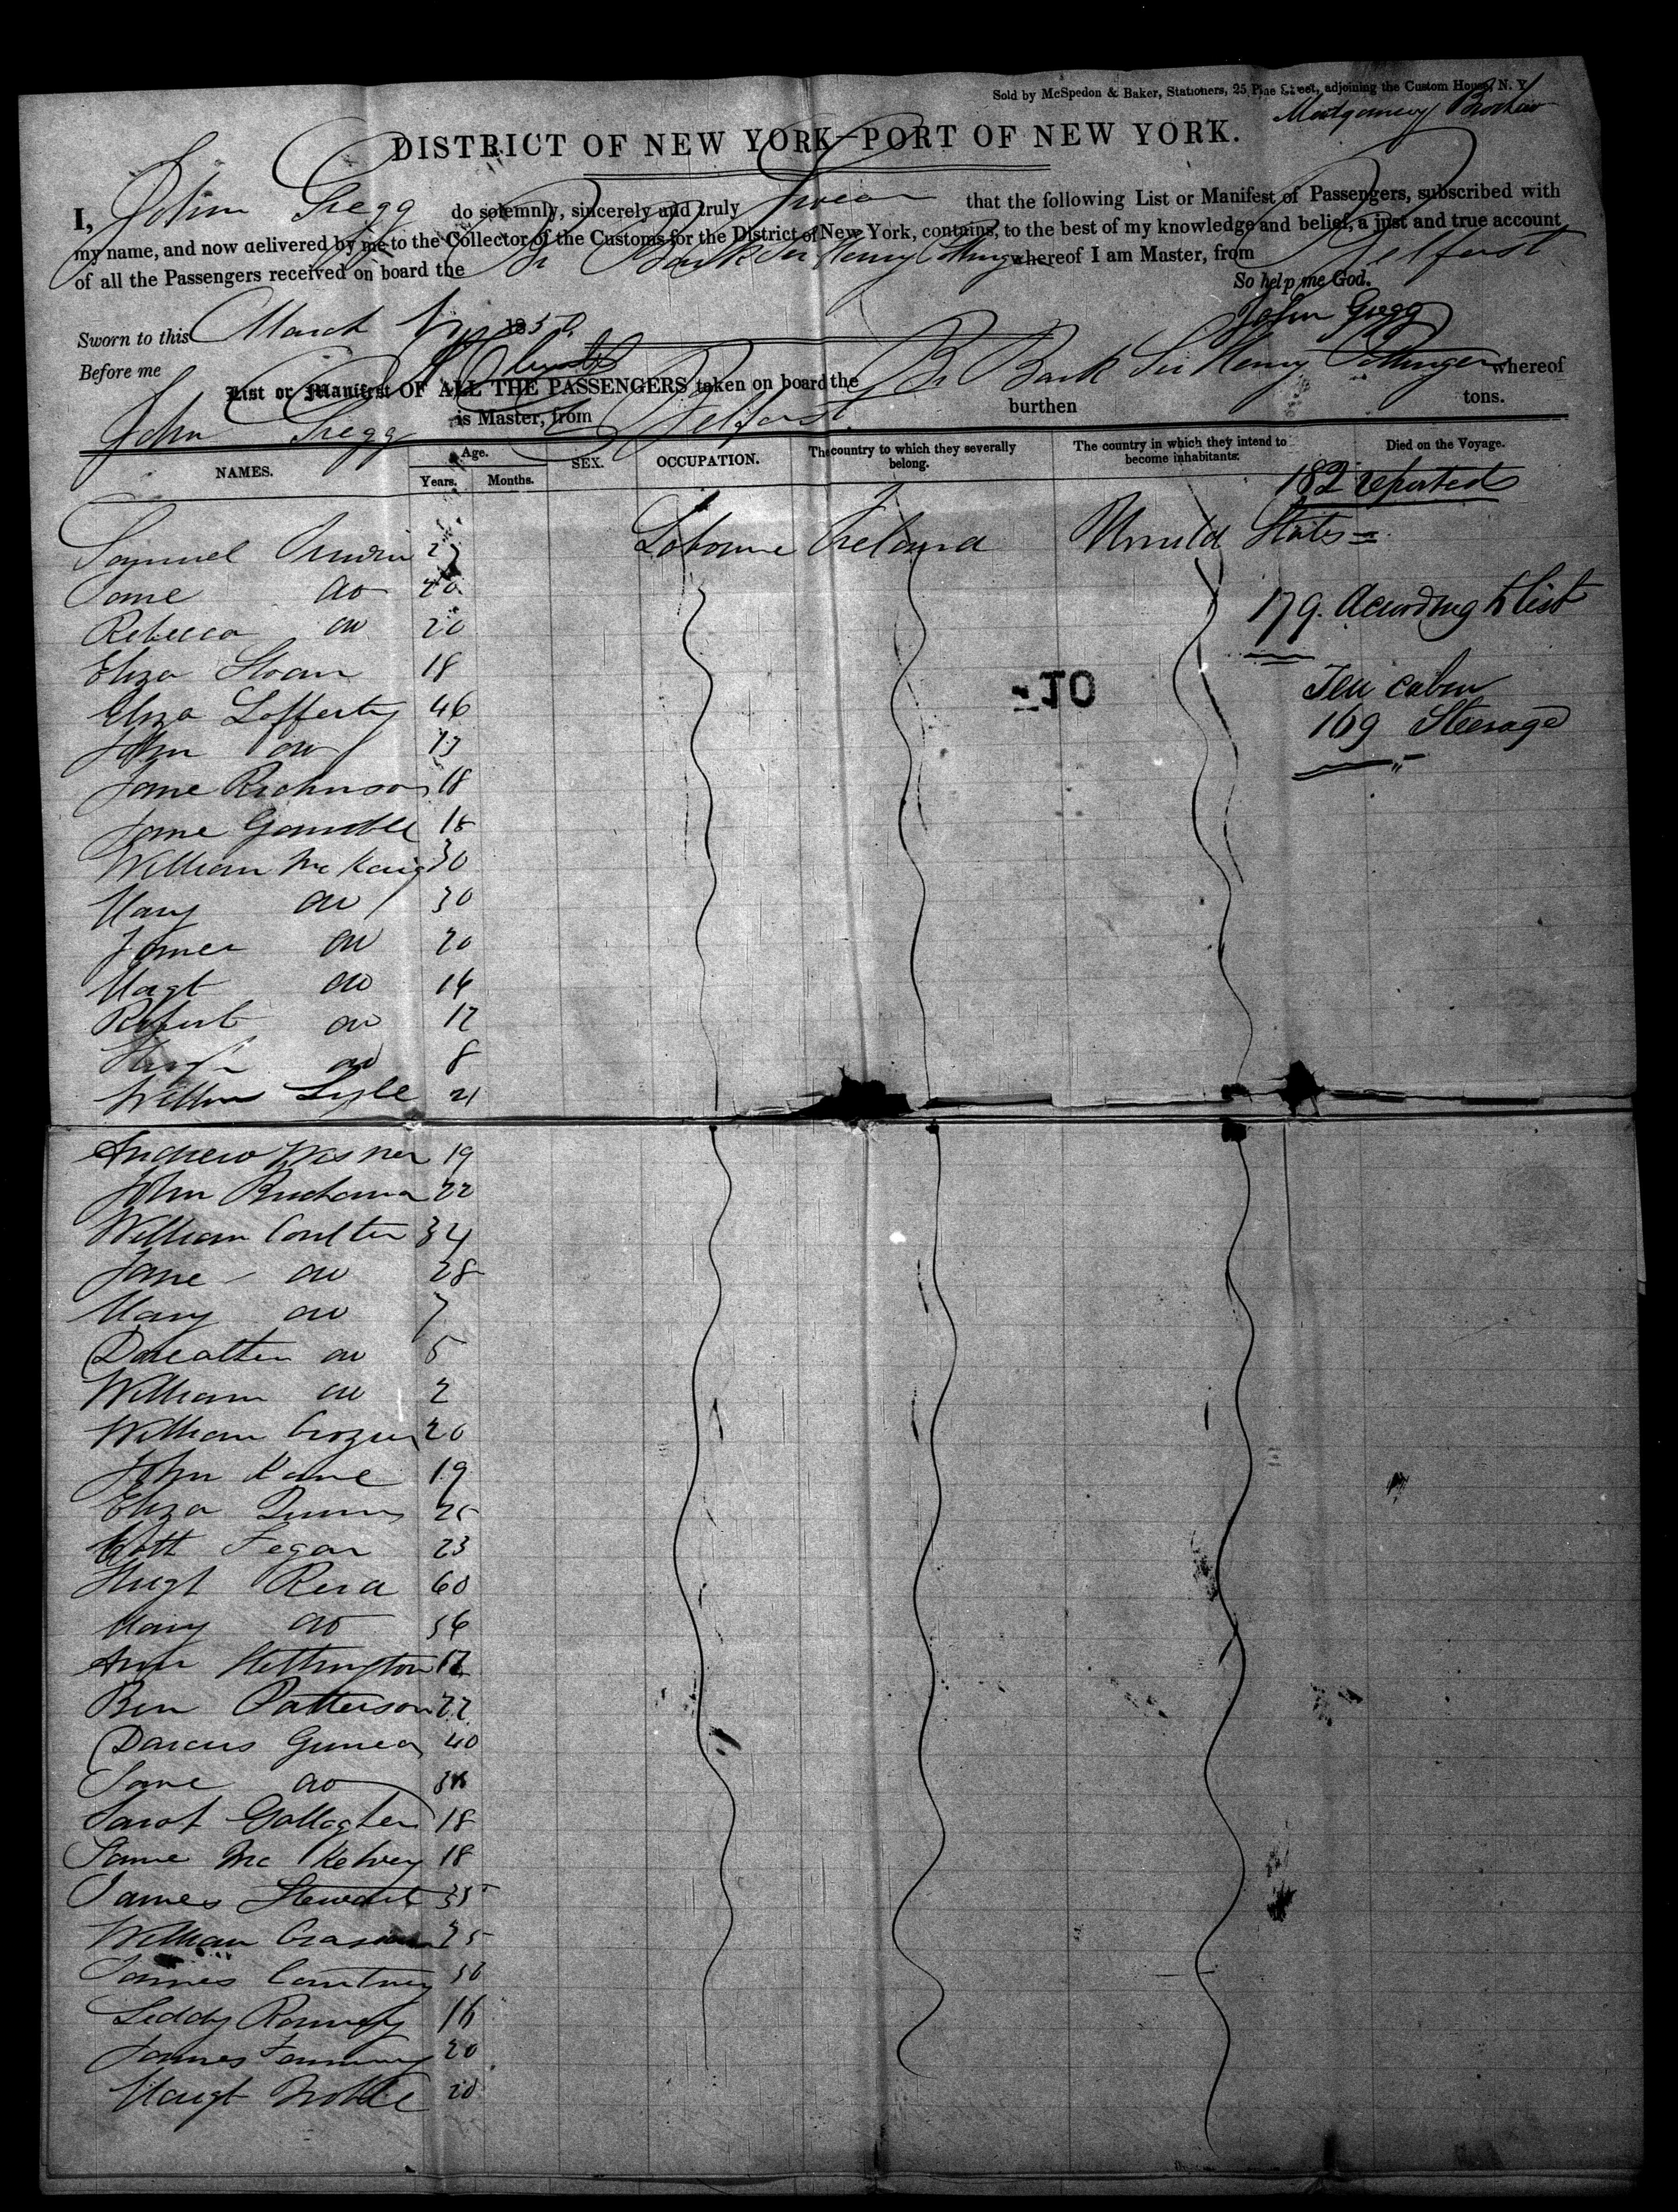 Sold by McSpedon & Baker, Stationers, 25 Pine Street, adjoining the Custom House, N. Y.
Montgomery
DISTRICT OF NEW YORK—PORT OF NEW YORK.
I, John Gregg do solemnly, sincerely and truly Swear that the following List or Manifest of Passengers, subscribed with
my name, and now delivered by me to the Collector of the Customs for the District of New York, contains, to the best of my knowledge and belief, a just and true account
of all the Passengers received on board the Br Bark Sir Henry Pottinger whereof I am Master, from Belfast
So help me God.
Sworn to this March 1850
John Gregg
Before me
List or Manifest OF ALL THE PASSENGERS taken on board the Br Bark Sir Henry Pottinger whereof
John Gregg is Master, from Belfast burthen tons.
NAMES. Age. Years. Months. SEX. OCCUPATION. The country to which they severally belong. The country in which they intend to become inhabitants. Died on the Voyage.
182 reported
Samuel Irwin 27 Labourer Ireland United States
Jane do 20
179. According to List
Rebecca do 20
Eliza Sloan 18
Ten cabin
-10
Eliza Lafferty 46
169 Steerage
John do 13
Jane Richinson 18
Jane Gamble 18
William McKaig 30
Mary do 30
James do 20
Margt do 14
Robert do 12
Hugh do 8
William Lyle 21
Andrew 19
John Buchanan 22
William Coulter 34
Jane do 28
Mary do 7
do 5
William do 2
William Crozier 20
John Kane 19
Eliza Quinn 25
Fegan 23
Hugh Reid 60
Mary do 56
Ann Hethrington 17
Ben Patterson 22
Darcus 40
Jane do
Sarah Gallagher 18
Jane McKelvey 18
James Stewart 35
William 25
James Courtney 30
16
James 20
Margt Noble 20